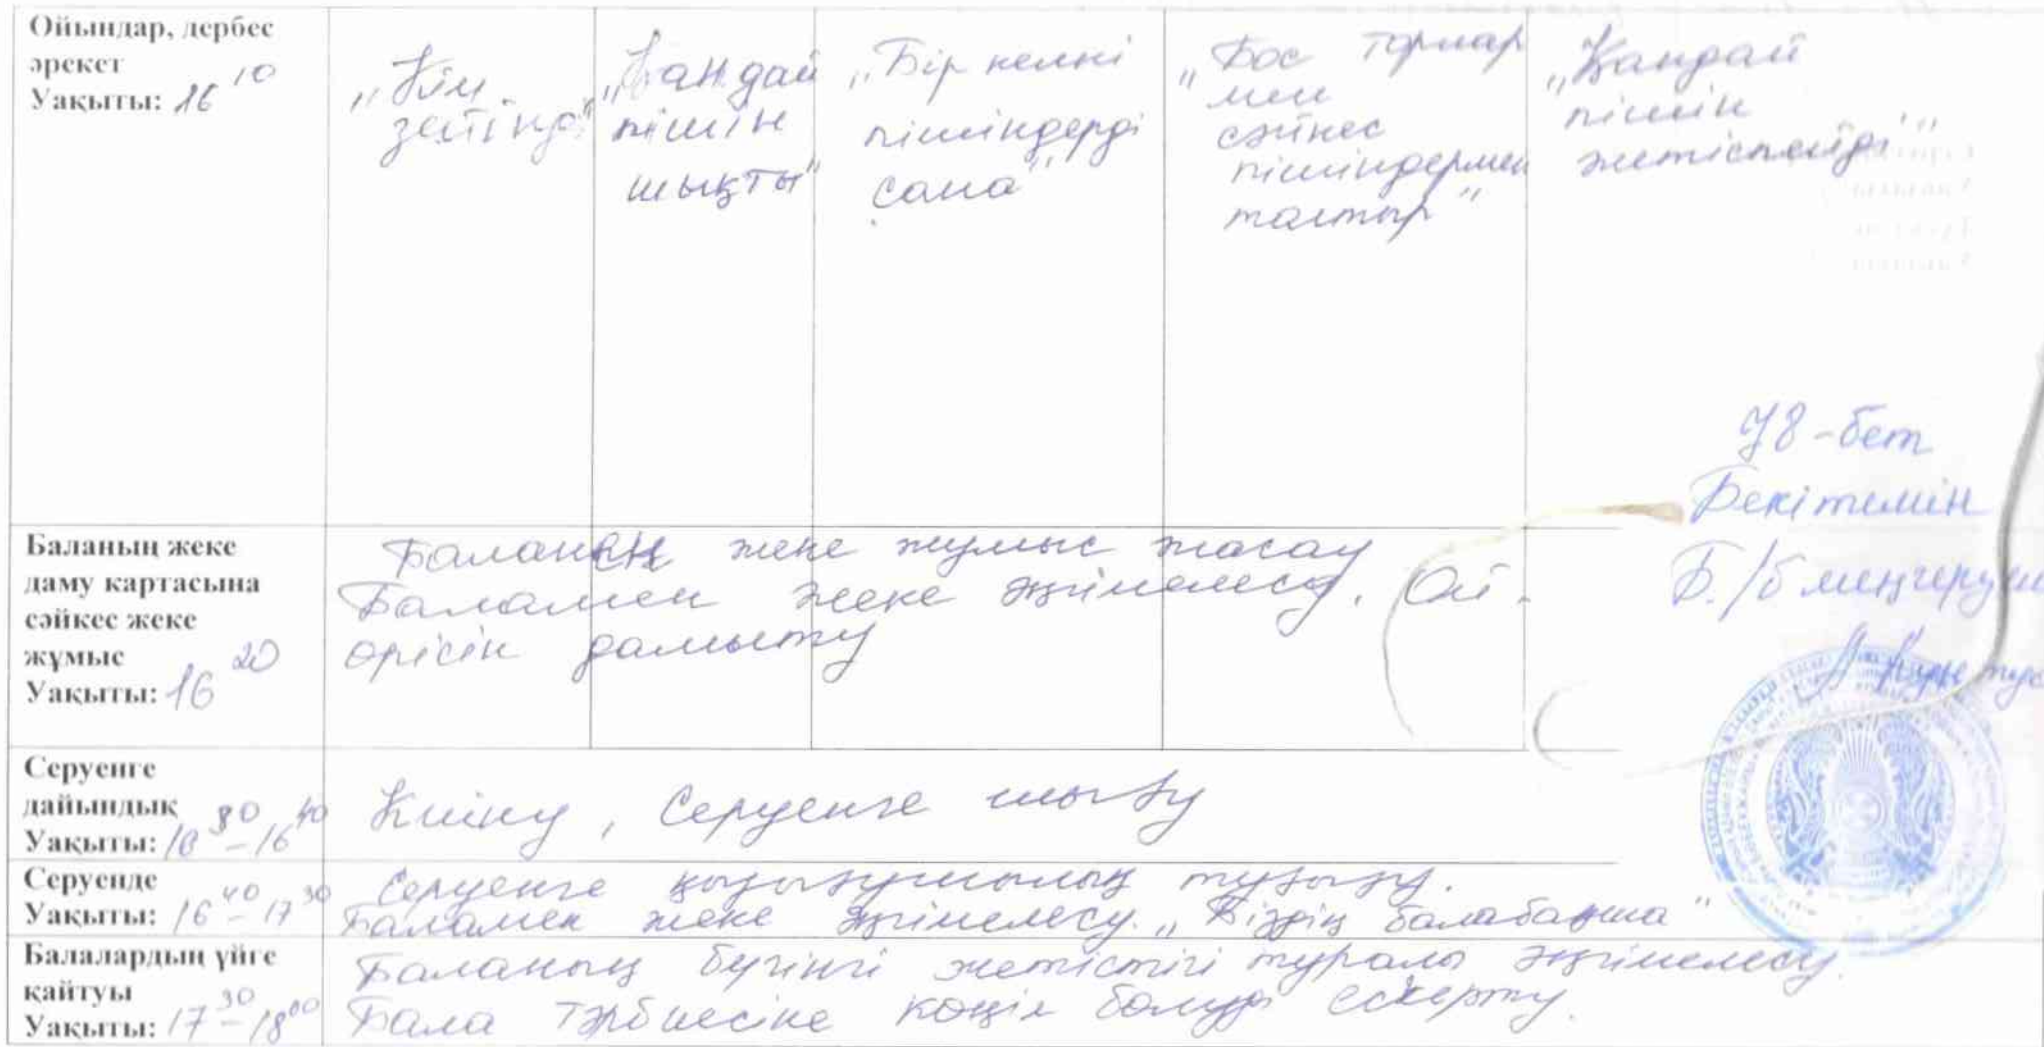 Ойындар, дербес
әрекет
Уақыты: 16 10
„Кім
зейінді"
„Қандай
пішін
шықты"
„Бір келкі
пішіндерді
сана"
„Бос торлар
мен
сәйкес
пішіндермен
толтыр"
„Қандай
пішін
жетіспейді"
78-бет
Бекітемін
Б./б меңгеруші
Баланың жеке
даму картасына
сәйкес жеке
жұмыс
Уақыты: 16 20
Баланың жеке жұмыс жасау
Баламен жеке әңгімелесу. Ой-
өрісін дамыту
Серуенге
дайындық
Уақыты: 16 30 – 16 40
Киіну, Серуенге шығу
Серуенде
Уақыты: 16 40 – 17 30
Серуенге қызығушылық туғызу.
Баламен жеке әңгімелесу. „Біздің балабақша"
Балалардың үйге
қайтуы
Уақыты: 17 30 – 18 00
Баланың бүгінгі жетістігі туралы әңгімелесу.
Бала тәрбиесіне көңіл бөлуді ескерту.